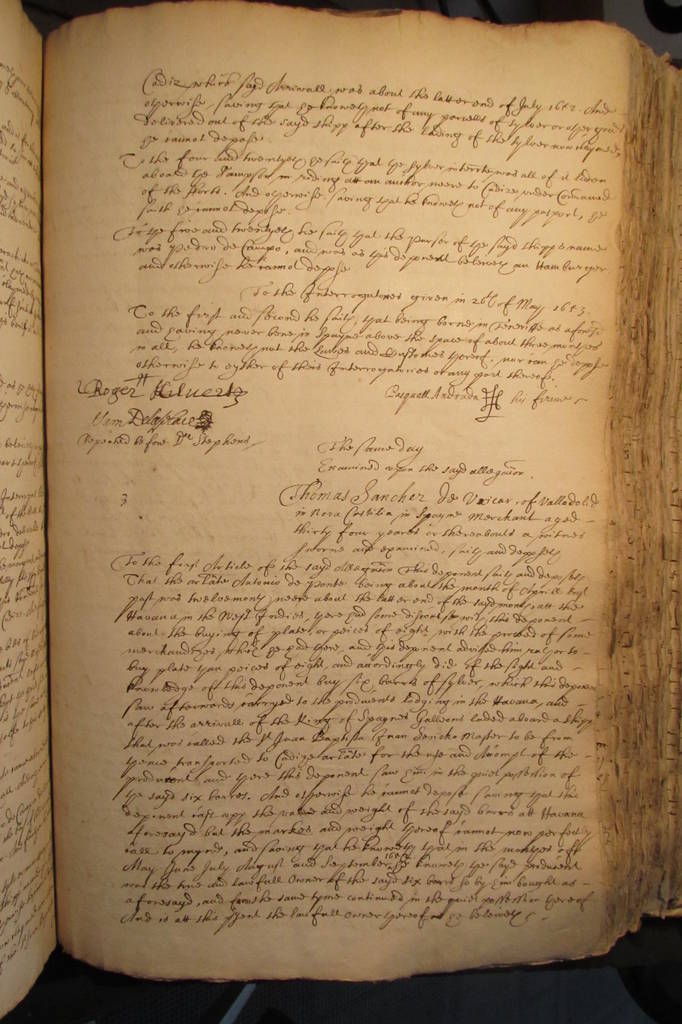 Cadiz, which sayd Arrivall was about the latter end of July 1652 And
otherwise, saving that hee knoweth not of any parcells of sylver or other goods
delivered out of the sayd shipp after the lading of the sylver now claymed,
hee cannot depose.
To the four and twentyeth he saith that the sylver interrate was all of it laden
aboard the Sampson in riding att an anchor neere to Cadiz under Command
of the Ports. And otherwise, saving that he knoweth not of any pasport, he
saith he cannot depose.
To the five and twentyeth he saith that the Purser of the sayd shipps name
was Pedro de Campo, and was as this deponent beleeveth an Hamburger
and otherwise he cannot depose
To the Interrogatories given in 26th of May 1653.
To the first and second he saith, that being borne in Teneriffe as aforesd
and having never bene in Spayne above the space of about three monthes
in all, he knoweth not the Lawes and Customes thereof, nor can he depose
otherwise to eyther of theis Interrogatories or any part thereof.
Roger Hilvert
Pasquall Andrada his firme
Wam Delaplace
Repeated before Dr Stephens
The same day
Examined upon the sayd allegation.
3
Thomas Sanchez de , of Valladolid
in Nova Castilia in Spayne Merchant aged
thirty four yeares or thereabouts a witnes
sworne and examined, saith and deposeth
To the first Article of the sayd Allegation This deponent saith and deposeth
That the arlate Antonio de Ponte being about the month of Aprill last
past was twelvemonth neere about the latter end of the sayd month, att the
Havana, in the West Indies, there had some discourse with this deponent
about the buying of plate, or peices of eight, with the proceed of some
merchandizes, which he had there, and this deponent advised him rather to
buy plate than peices of eight, and accordingly did of the sight and
knowledge of this deponent buy six barrs of sylver, which this deponent
saw afterwards carryed to the producents lodging in the Havana, and
after the arrivall of the King of Spaynes Galleons laded aboard a shipp
that was called the St Juan Baptista Juan Master to be from
thence transported to Cadiz arlate for the use and Accompt of the
producent, and there this deponent saw him in the quiet possession of
the sayd six barres. And otherwise he cannot depose saving that this
deponent cast upp the value and weight of the sayd barrs att Havana
aforesayd but the markes and weight thereof cannot now perfectly
call to mynd, and saving that he knoweth that in the monthes of
May June July August and September 1652 he knoweth the sayd producent
was the true and lawfull Owner of the sayd six barrs so by him bought as
aforesayd, and for the same tyme continued in the quiet possession thereof
And is att this psent the lawfull owner thereof as he beleeveth.